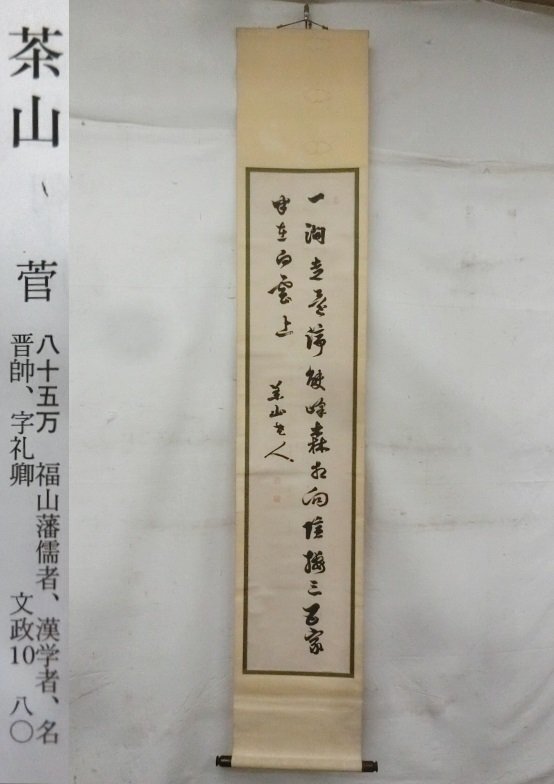 茶山
菅
八十五万 福山藩儒者、漢学者、名
晋帥、字礼卿 文政10 八〇
一澗走 雙峰森相向 三百家
半在白雲上
茶山老人